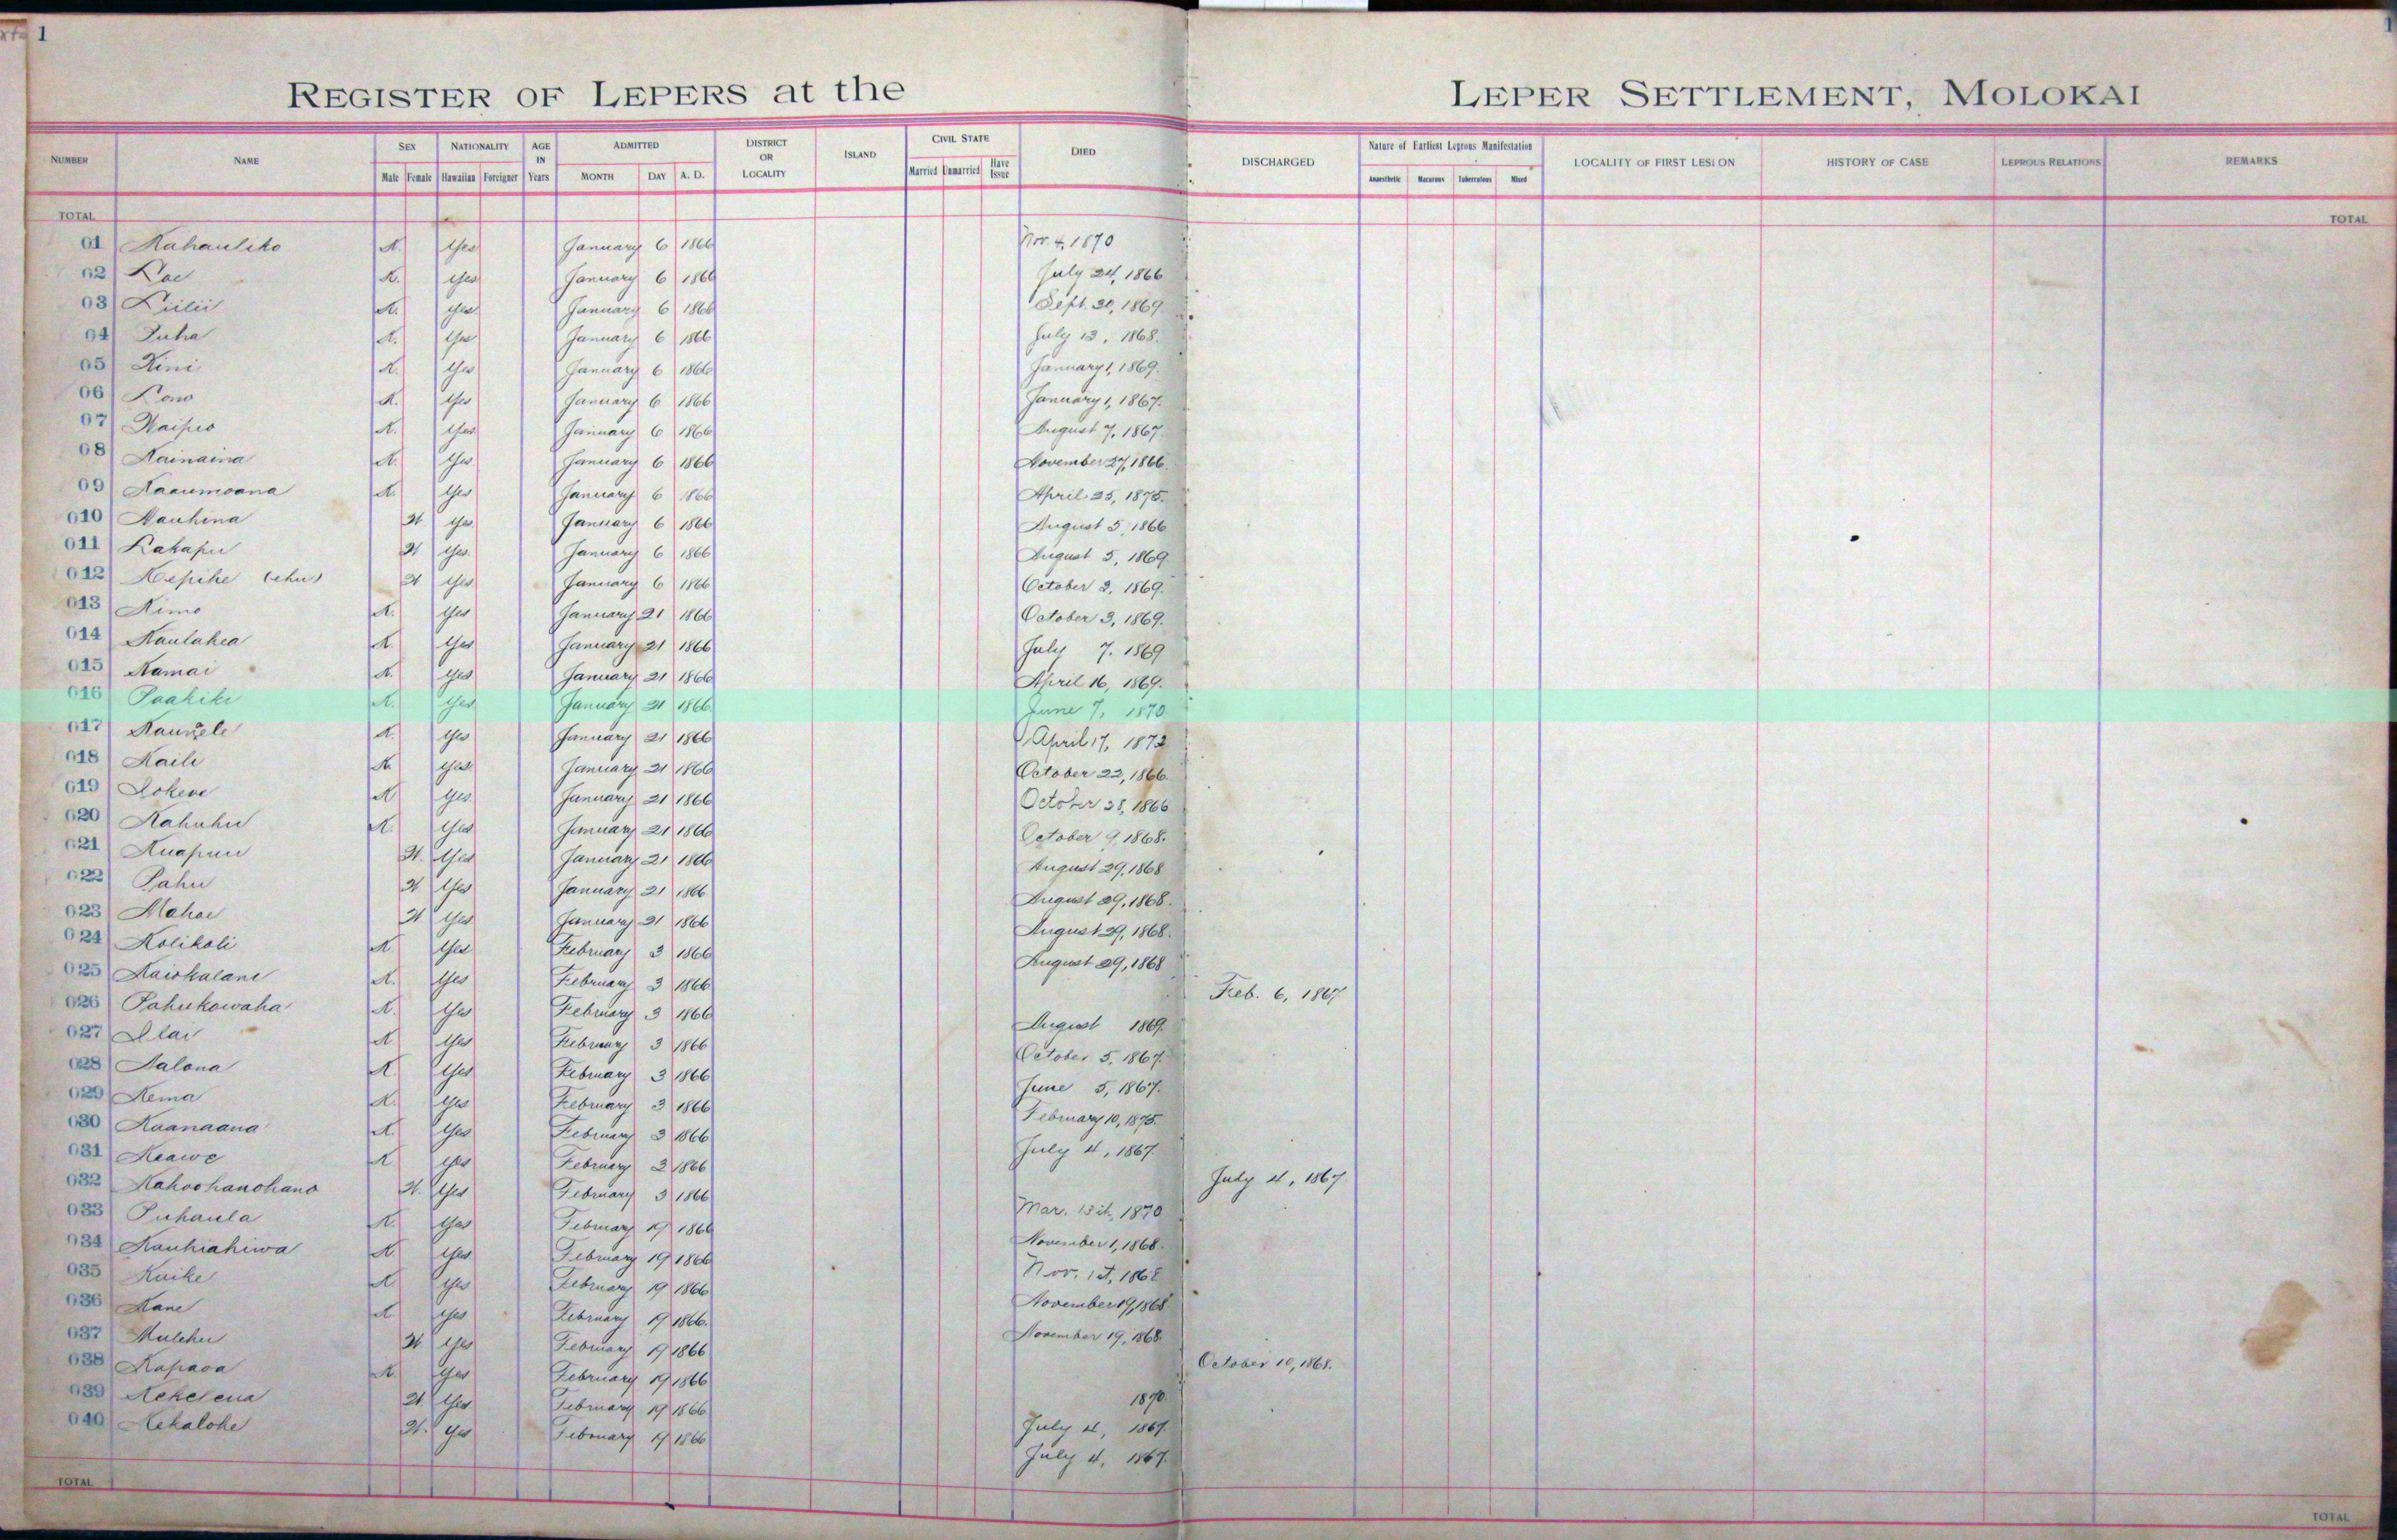 1
REGISTER OF LEPERS at the LEPER SETTLEMENT, MOLOKAI
NUMBER NAME SEX Male Female NATIONALITY Hawaiian Foreigner AGE IN Years ADMITTED MONTH DAY A. D. DISTRICT OR LOCALITY ISLAND CIVIL STATE Married Unmarried Have Issue DIED DISCHARGED Nature of Earliest Leprous Manifestation Anaesthetic Macurous Tuberculous Mixed LOCALITY OF FIRST LESION HISTORY OF CASE LEPROUS RELATIONS REMARKS
TOTAL TOTAL
01 Kahauliko K. Yes January 6 1866 Nov. 4, 1870
02 Lae K. Yes January 6 1866 July 24, 1866
03 Liilii K. Yes January 6 1866 Sept. 30, 1869
04 Puha K. Yes January 6 1866 July 13, 1868.
05 Kini K. Yes January 6 1866 January 1, 1869.
06 Lono K. Yes January 6 1866 January 1, 1867.
07 Waipio K. Yes January 6 1866 August 7, 1867.
08 Kainaina K. Yes January 6 1866 November 27, 1866.
09 Kaaumoana K. Yes January 6 1866 April 25, 1875.
010 Nauhina W Yes January 6 1866 August 5, 1866
011 Lakapu W Yes January 6 1866 August 5, 1869.
012 Kepihe (ehu) W Yes January 6 1866 October 3, 1869.
013 Kimo K. Yes January 21 1866 October 3, 1869.
014 Kaulahea K Yes January 21 1866 July 7. 1869
015 Kamai K. Yes January 21 1866 April 16, 1869.
016 Paakiki K. Yes January 21 1866 June 7, 1870
017 Yes January 21 1866 April 17, 1872
018 Kaili K Yes January 21 1866 October 22, 1866.
019 Lokene K Yes January 21 1866 October 28, 1866
020 Kahuhu K. Yes January 21 1866 October 9, 1868.
021 Kuapuu W. Yes January 21 1866 August 29, 1868
022 Pahu W Yes January 21 1866 August 29, 1868.
023 Mahoe W Yes January 21 1866 August 29, 1868.
024 Kolikoli K. Yes February 3 1866 August 29, 1868
025 Kaiokalani K. Yes February 3 1866 Feb. 6, 1867
026 Pahukowaha K. Yes February 3 1866 August 1869.
027 Ilai K Yes February 3 1866 October 5, 1867.
028 Nalona K. Yes February 3 1866 June 5, 1867.
029 Kema K. Yes February 3 1866 February 10, 1875.
030 Kaanaana K Yes February 3 1866 July 4, 1867
031 Keawe K Yes February 3 1866 July 4, 1867
032 Kahoohanohano W. Yes February 3 1866 Mar. 15th, 1870
033 Puhaula K. Yes February 19 1866 November 1, 1868.
034 Kauhiahiwa K Yes February 19 1866 Nov. 1st, 1868
035 Kuike K Yes February 19 1866 November 19, 1868
036 Kane K Yes February 19 1866. November 19, 1868.
037 Mulehu W Yes February 19 1866 October 10, 1868.
038 Kapaoa K. Yes February 19 1866 1870.
039 Kekelena W Yes February 19 1866 July 4, 1867.
040 Kekalohe W. Yes February 19 1866 July 4, 1867.
TOTAL TOTAL